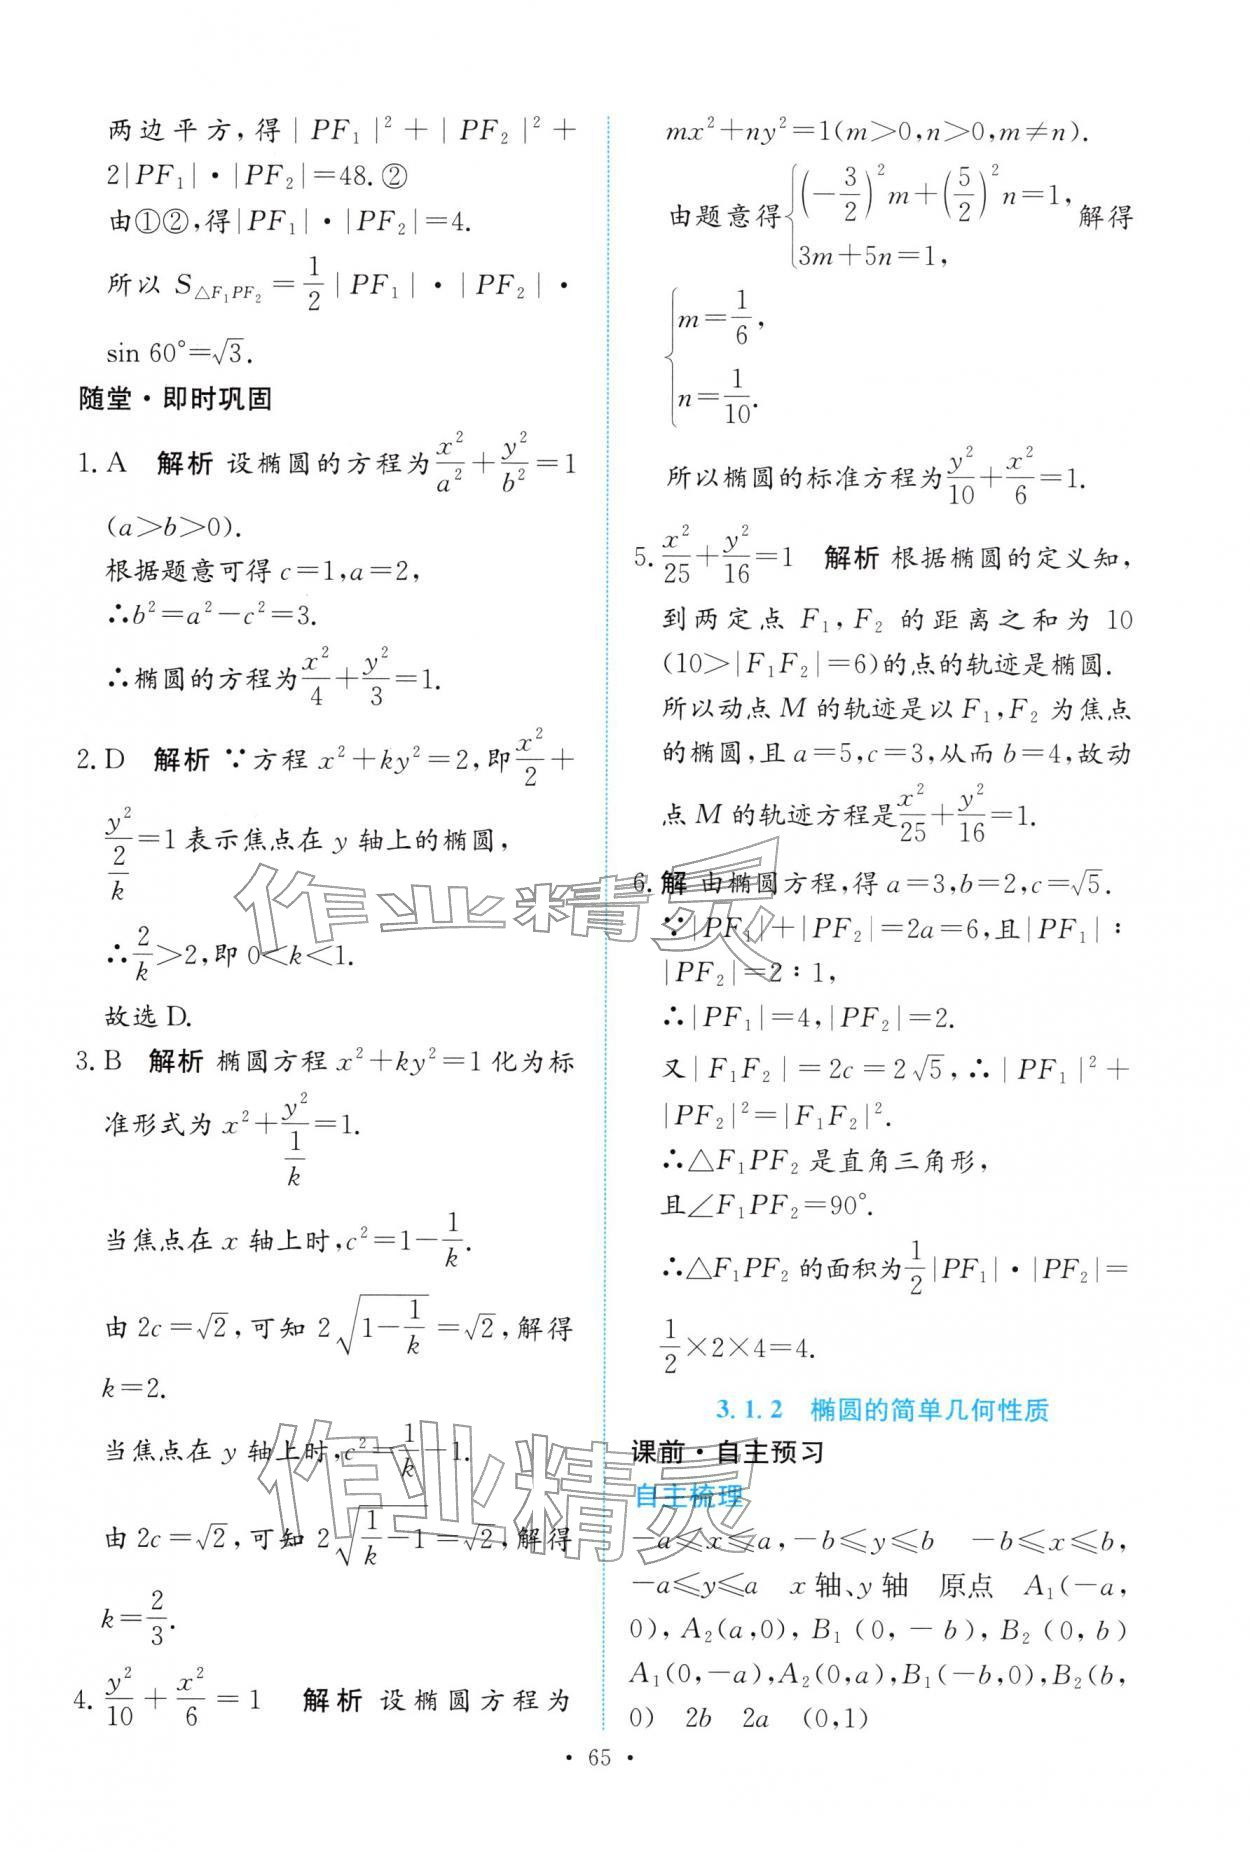 两边平方，得|PF₁|²+|PF₂|²+
2|PF₁|·|PF₂|=48.②
由①②,得|PF₁|·|PF₂|=4.
所以 S△F₁PF₂ = 1/2 |PF₁|·|PF₂|·
sin 60°=√3.
随堂·即时巩固
1. A 解析 设椭圆的方程为x²/a²+y²/b²=1
(a>b>0).
根据题意可得 c=1,a=2,
∴b²=a²-c²=3.
∴椭圆的方程为x²/4+y²/3=1.
2. D 解析 ∵方程 x²+ky²=2,即x²/2+
y²/(2/k)=1表示焦点在 y 轴上的椭圆,
∴2/k>2,即 0<k<1.
故选 D.
3. B 解析 椭圆方程 x²+ky²=1化为标
准形式为 x²+y²/(1/k)=1.
当焦点在 x 轴上时,c²=1-1/k.
由 2c=√2,可知 2√(1-1/k)=√2,解得
k=2.
当焦点在 y 轴上时,c²=1/k-1.
由 2c=√2,可知 2√(1/k-1)=√2,解得
k=2/3.
4. y²/10+x²/6=1 解析 设椭圆方程为
mx²+ny²=1(m>0,n>0,m≠n).
由题意得{(-3/2)²m+(5/2)²n=1, 3m+5n=1, 解得
{m=1/6,
n=1/10.
所以椭圆的标准方程为y²/10+x²/6=1.
5. x²/25+y²/16=1 解析 根据椭圆的定义知,
到两定点 F₁,F₂ 的距离之和为 10
(10>|F₁F₂|=6)的点的轨迹是椭圆.
所以动点 M 的轨迹是以 F₁,F₂ 为焦点
的椭圆,且 a=5,c=3,从而 b=4,故动
点 M 的轨迹方程是x²/25+y²/16=1.
6. 解 由椭圆方程,得 a=3,b=2,c=√5.
∵|PF₁|+|PF₂|=2a=6,且|PF₁|:
|PF₂|=2:1,
∴|PF₁|=4,|PF₂|=2.
又|F₁F₂|=2c=2√5,∴|PF₁|²+
|PF₂|²=|F₁F₂|².
∴△F₁PF₂ 是直角三角形,
且∠F₁PF₂=90°.
∴△F₁PF₂ 的面积为1/2|PF₁|·|PF₂|=
1/2×2×4=4.
3.1.2 椭圆的简单几何性质
课前·自主预习
自主梳理
-a≤x≤a,-b≤y≤b -b≤x≤b,
-a≤y≤a x 轴、y 轴 原点 A₁(-a,
0),A₂(a,0),B₁(0,-b),B₂(0,b)
A₁(0,-a),A₂(0,a),B₁(-b,0),B₂(b,
0) 2b 2a (0,1)
· 65 ·
作业精灵
作业精灵